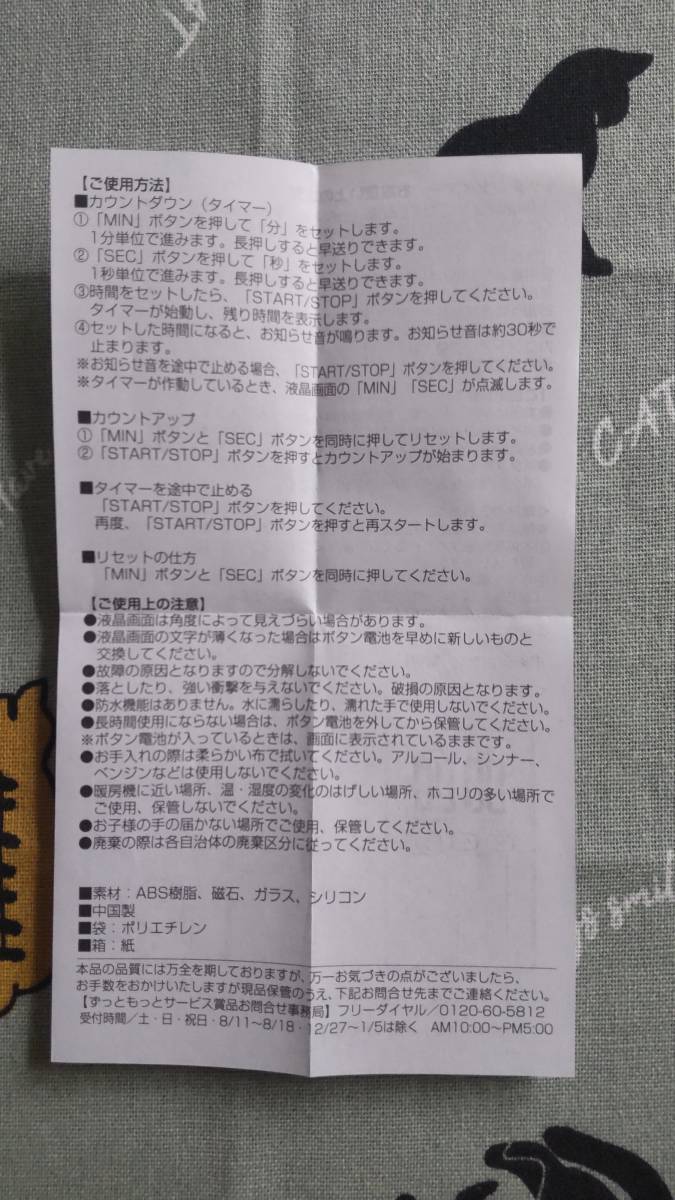 【ご使用方法】
■カウントダウン（タイマー）
①「MIN」ボタンを押して「分」をセットします。
1分単位で進みます。長押しすると早送りできます。
②「SEC」ボタンを押して「秒」をセットします。
1秒単位で進みます。長押しすると早送りできます。
③時間をセットしたら、「START/STOP」ボタンを押してください。
タイマーが始動し、残り時間を表示します。
④セットした時間になると、お知らせ音が鳴ります。お知らせ音は約30秒で
止まります。
※お知らせ音を途中で止める場合、「START/STOP」ボタンを押してください。
※タイマーが作動しているとき、液晶画面の「MIN」「SEC」が点滅します。
■カウントアップ
①「MIN」ボタンと「SEC」ボタンを同時に押してリセットします。
②「START/STOP」ボタンを押すとカウントアップが始まります。
■タイマーを途中で止める
「START/STOP」ボタンを押してください。
再度、「START/STOP」ボタンを押すと再スタートします。
■リセットの仕方
「MIN」ボタンと「SEC」ボタンを同時に押してください。
【ご使用上の注意】
●液晶画面は角度によって見えづらい場合があります。
●液晶画面の文字が薄くなった場合はボタン電池を早めに新しいものと
交換してください。
●故障の原因となりますので分解しないでください。
●落としたり、強い衝撃を与えないでください。破損の原因となります。
●防水機能はありません。水に濡らしたり、濡れた手で使用しないでください。
●長時間使用にならない場合は、ボタン電池を外してから保管してください。
※ボタン電池が入っているときは、画面に表示されているままです。
●お手入れの際は柔らかい布で拭いてください。アルコール、シンナー、
ベンジンなどは使用しないでください。
●暖房機に近い場所、温・湿度の変化のはげしい場所、ホコリの多い場所で
ご使用、保管しないでください。
●お子様の手の届かない場所でご使用、保管してください。
●廃棄の際は各自治体の廃棄区分に従ってください。
■素材：ABS樹脂、磁石、ガラス、シリコン
■中国製
■袋：ポリエチレン
■箱：紙
本品の品質には万全を期しておりますが、万一お気づきの点がございましたら、
お手数をおかけいたしますが現品保管のうえ、下記お問合せ先までご連絡ください。
【ずっともっとサービス賞品お問合せ事務局】フリーダイヤル／0120-60-5812
受付時間／土・日・祝日・8/11～8/18・12/27～1/5は除く AM10:00～PM5:00
CAT